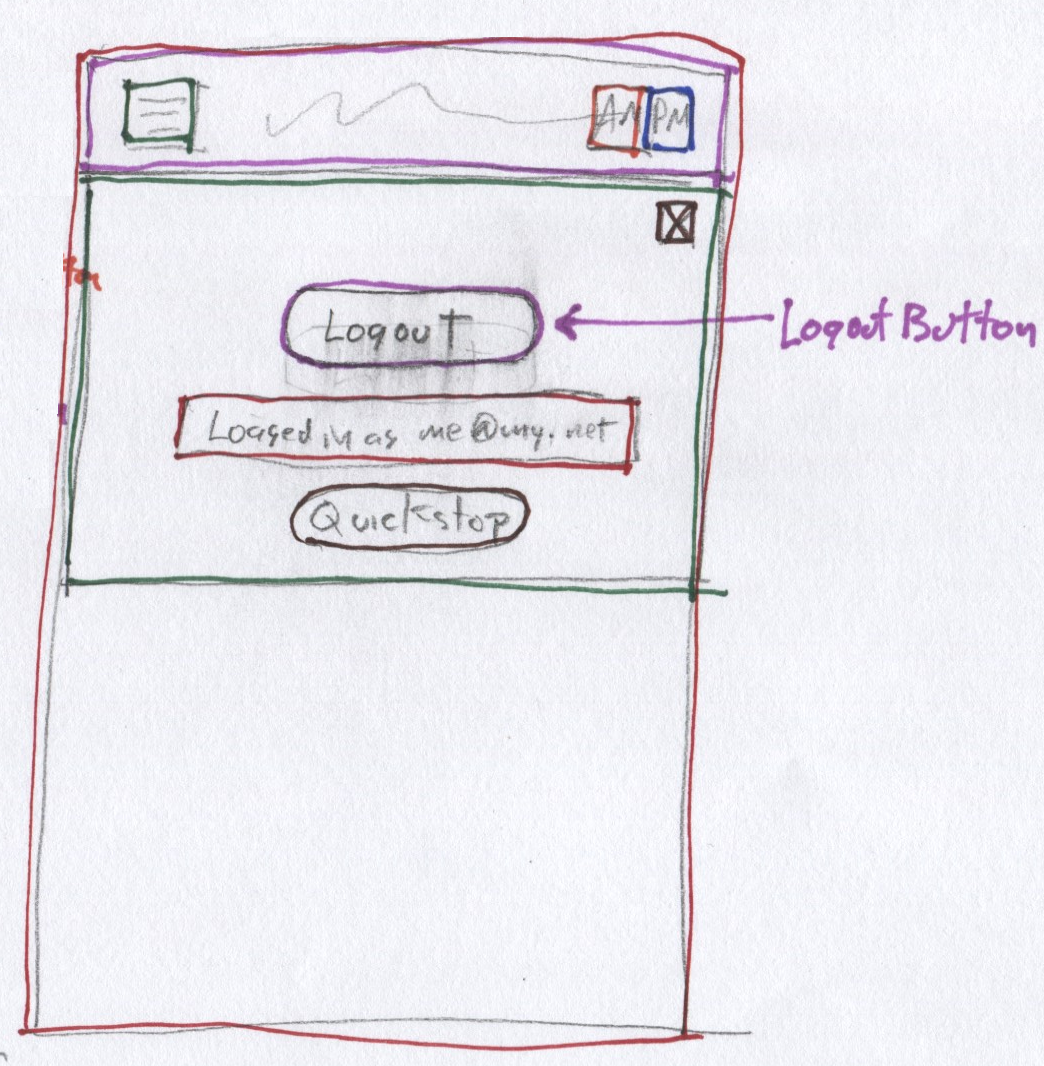 AM PM
for
Logout
Logout Button
Logged in as me@my.net
Quickstop